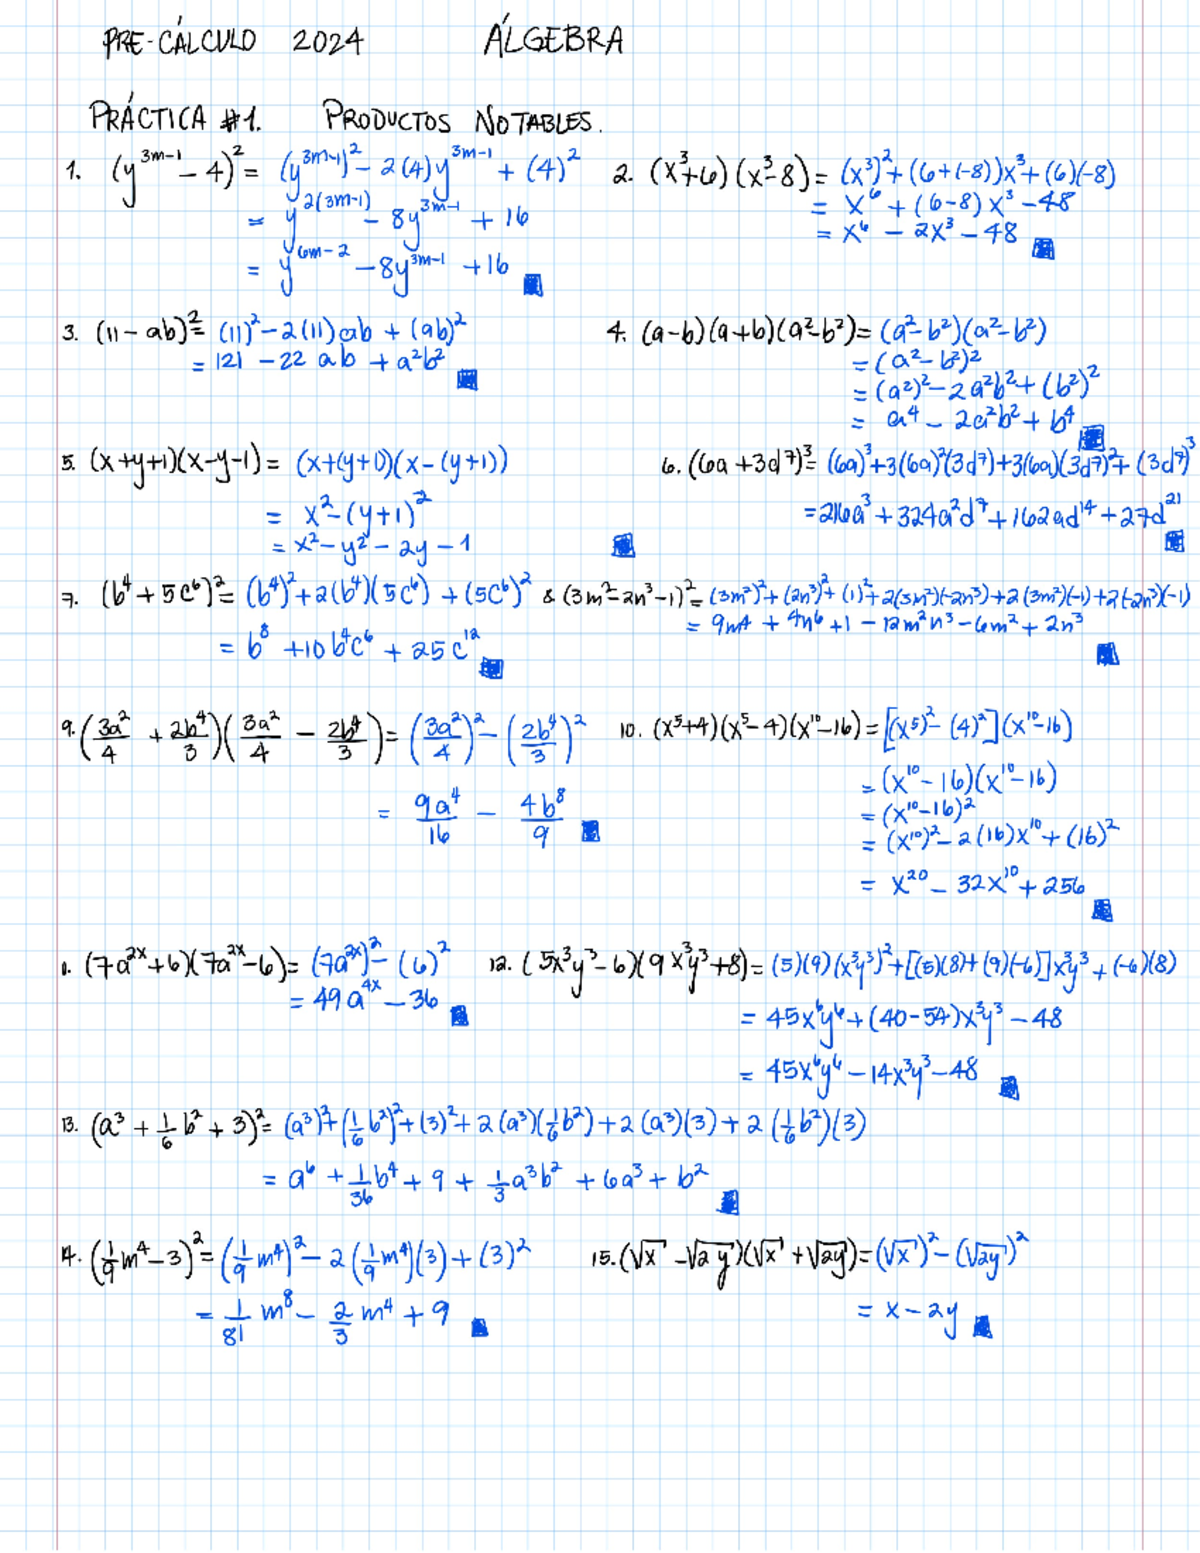 PRE-CÁLCULO 2024 ÁLGEBRA
PRÁCTICA #1. PRODUCTOS NOTABLES.
1. (y^{3m-1} - 4)² = (y^{3m-1})² - 2(4)y^{3m-1} + (4)²
= y^{2(3m-1)} - 8y^{3m-1} + 16
= y^{6m-2} - 8y^{3m-1} + 16
2. (x³+6)(x³-8) = (x³)² + (6+(-8))x³ + (6)(-8)
= x⁶ + (6-8)x³ - 48
= x⁶ - 2x³ - 48
3. (11 - ab)² = (11)² - 2(11)ab + (ab)²
= 121 - 22ab + a²b²
4. (a-b)(a+b)(a²-b²) = (a²-b²)(a²-b²)
= (a²-b²)²
= (a²)² - 2a²b² + (b²)²
= a⁴ - 2a²b² + b⁴
5. (x+y+1)(x-y-1) = (x+(y+1))(x-(y+1))
= x² - (y+1)²
= x² - y² - 2y - 1
6. (6a + 3d⁷)³ = (6a)³ + 3(6a)²(3d⁷) + 3(6a)(3d⁷)² + (3d⁷)³
= 216a³ + 324a²d⁷ + 162ad¹⁴ + 27d²¹
7. (b⁴ + 5c⁶)² = (b⁴)² + 2(b⁴)(5c⁶) + (5c⁶)²
= b⁸ + 10b⁴c⁶ + 25c¹²
8 (3m²-2n³-1)² = (3m²)² + (2n³)² + (1)² + 2(3m²)(-2n³) + 2(3m²)(-1) + 2(-2n³)(-1)
= 9m⁴ + 4n⁶ + 1 - 12m²n³ - 6m² + 2n³
9. (3a²/4 + 2b⁴/3)(3a²/4 - 2b⁴/3) = (3a²/4)² - (2b⁴/3)²
= 9a⁴/16 - 4b⁸/9
10. (x⁵+4)(x⁵-4)(x¹⁰-16) = [(x⁵)² - (4)²](x¹⁰-16)
= (x¹⁰-16)(x¹⁰-16)
= (x¹⁰-16)²
= (x¹⁰)² - 2(16)x¹⁰ + (16)²
= x²⁰ - 32x¹⁰ + 256
(7a^{2x}+6)(7a^{2x}-6) = (7a^{2x})² - (6)²
= 49a^{4x} - 36
12. (5x³y³-6)(9x³y³+8) = (5)(9)(x³y³)² + [(5)(8)+(9)(-6)]x³y³ + (-6)(8)
= 45x⁶y⁶ + (40-54)x³y³ - 48
= 45x⁶y⁶ - 14x³y³ - 48
13. (a³ + 1/6 b² + 3)² = (a³)² + (1/6 b²)² + (3)² + 2(a³)(1/6 b²) + 2(a³)(3) + 2(1/6 b²)(3)
= a⁶ + 1/36 b⁴ + 9 + 1/3 a³b² + 6a³ + b²
14. (1/9 m⁴ - 3)² = (1/9 m⁴)² - 2(1/9 m⁴)(3) + (3)²
= 1/81 m⁸ - 2/3 m⁴ + 9
15. (√x - √2y)(√x + √2y) = (√x)² - (√2y)²
= x - 2y